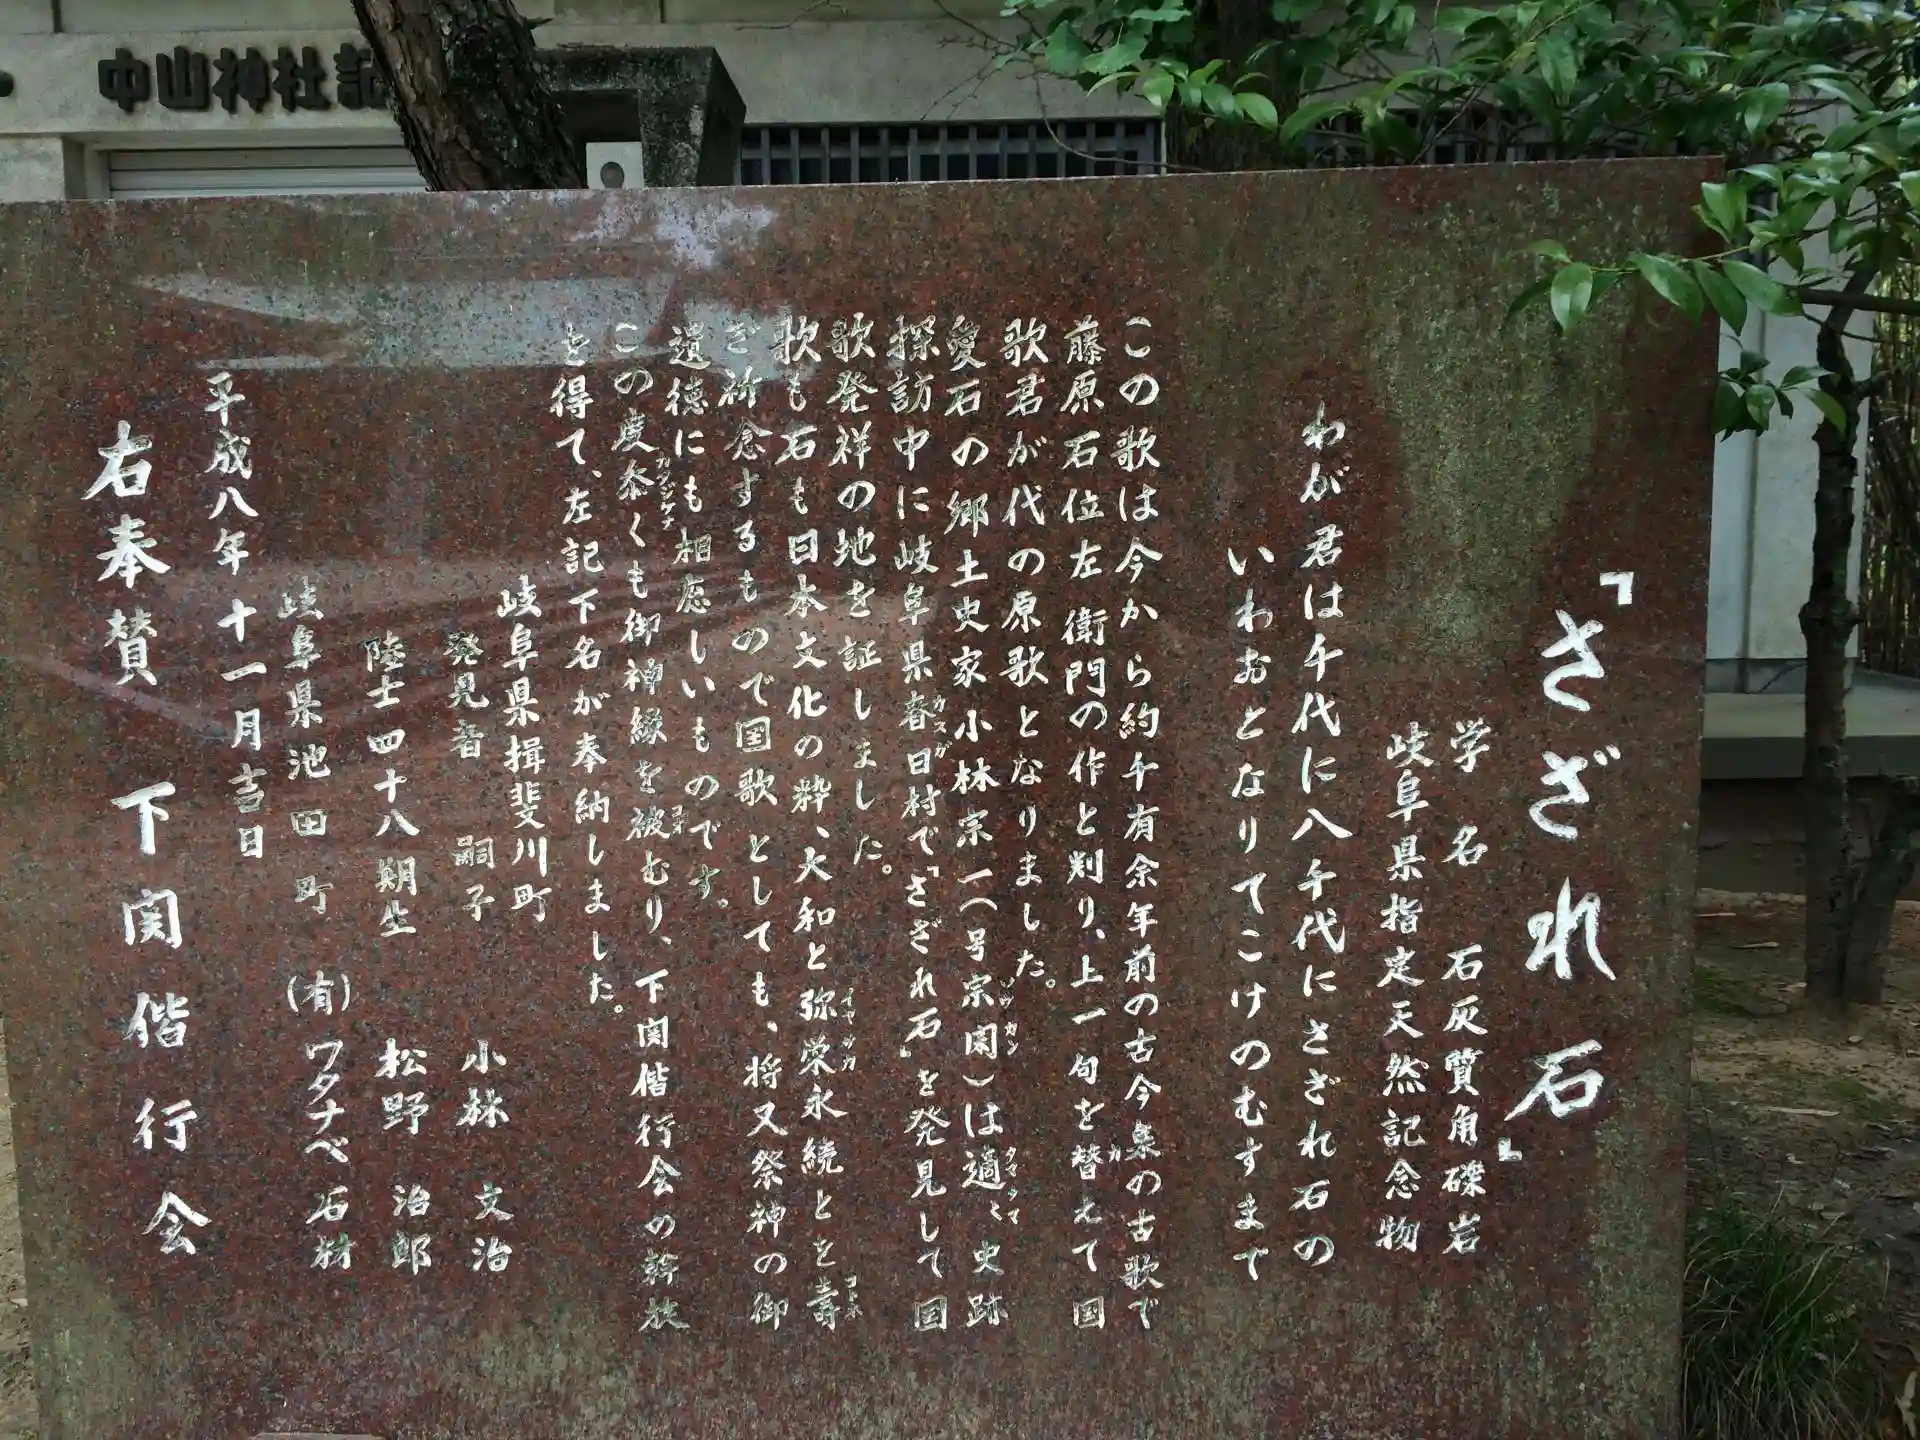 中山神社記
「さざれ石」
学名 石灰質角礫岩
岐阜県指定天然記念物
わが君は千代に八千代にさざれ石の
いわおとなりてこけのむすまで
この歌は今から約千有余年前の古今集の古歌で
藤原石位左衛門の作と判り、上一句を替えて国
カ
歌君が代の原歌となりました。
愛石の郷土史家小林宗一(号宗閑)は適々史跡
ソウカン
タマタマ
探訪中に岐阜県春日村で「さざれ石」を発見して国
カスガ
歌発祥の地を証しました。
歌も石も日本文化の粋、大和と弥栄永続とを壽
イヤサカ
コトホ
ぎ祈念するもので国歌としても、将又祭神の御
遺徳にも相応しいものです。
この度忝くも御神縁を被むり、下関偕行会の幹旋
カタジケナ
コオ
を得て、左記下名が奉納しました。
岐阜県揖斐川町
発見者 嗣子 小林 文治
陸士四十八期生 松野 治郎
岐阜県池田町 (有)ワタナベ石材
平成八年十一月吉日
右奉賛 下関偕行会